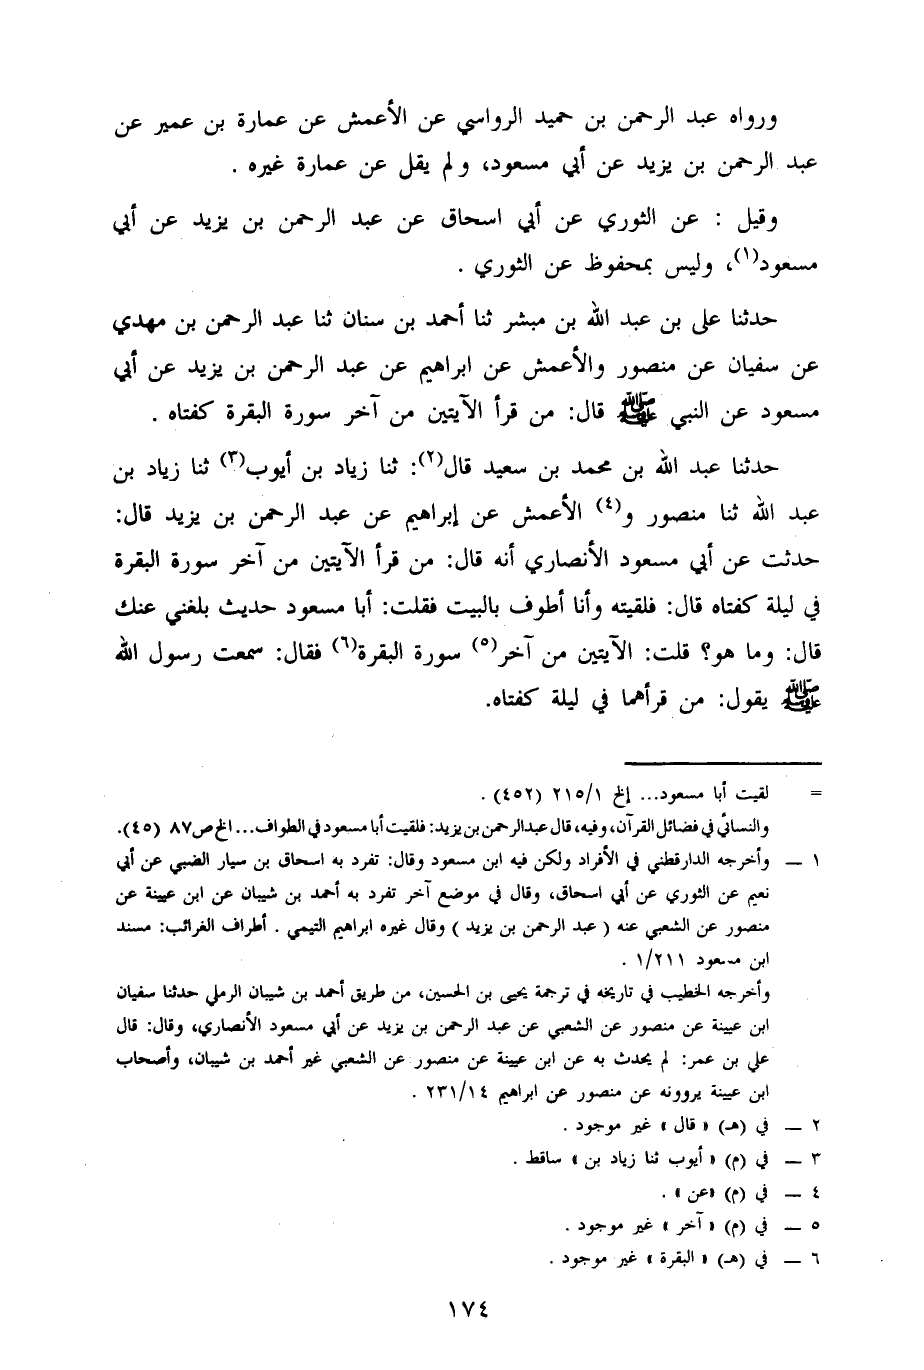 ورواه عبد الرحمن بن حميد الرواسي عن الأعمش عن عمارة بن عمير عن
عبد الرحمن بن يزيد عن أبي مسعود، ولم يقل عن عمارة غيره .
وقيل : عن الثوري عن أبي اسحاق عن عبد الرحمن بن يزيد عن أبي
مسعود(١)، وليس بمحفوظ عن الثوري .
حدثنا علي بن عبد الله بن مبشر ثنا أحمد بن سنان ثنا عبد الرحمن بن مهدي
عن سفيان عن منصور والأعمش عن ابراهيم عن عبد الرحمن بن يزيد عن أبي
مسعود عن النبي ﷺ قال: من قرأ الآيتين من آخر سورة البقرة كفتاه .
حدثنا عبد الله بن محمد بن سعيد قال(٢): ثنا زياد بن أيوب(٣) ثنا زياد بن
عبد الله ثنا منصور و(٤) الأعمش عن إبراهيم عن عبد الرحمن بن يزيد قال:
حدثت عن أبي مسعود الأنصاري أنه قال: من قرأ الآيتين من آخر سورة البقرة
في ليلة كفتاه قال: فلقيته وأنا أطوف بالبيت فقلت: أبا مسعود حديث بلغني عنك
قال: وما هو؟ قلت: الآيتين من آخر(٥) سورة البقرة(٦) فقال: سمعت رسول الله
ﷺ يقول: من قرأهما في ليلة كفتاه.
= لقيت أبا مسعود... إلخ ٢١٥/١ (٤٥٢) .
والنسائي في فضائل القرآن، وفيه، قال عبدالرحمن بن يزيد: فلقيت أبا مسعود في الطواف... الخ ص٨٧ (٤٥).
١ — وأخرجه الدارقطني في الأفراد ولكن فيه ابن مسعود وقال: تفرد به اسحاق بن سيار الضبي عن أبي
نعيم عن الثوري عن أبي اسحاق، وقال في موضع آخر تفرد به أحمد بن شيبان عن ابن عيينة عن
منصور عن الشعبي عنه ( عبد الرحمن بن يزيد ) وقال غيره ابراهيم التيمي . أطراف الغرائب: مسند
ابن مسعود ١/٢١١ .
وأخرجه الخطيب في تاريخه في ترجمة يحيى بن الحسين، من طريق أحمد بن شيبان الرملي حدثنا سفيان
ابن عيينة عن منصور عن الشعبي عن عبد الرحمن بن يزيد عن أبي مسعود الأنصاري، وقال: قال
علي بن عمر: لم يحدث به عن ابن عيينة عن منصور عن الشعبي غير أحمد بن شيبان، وأصحاب
ابن عيينة يروونه عن منصور عن ابراهيم ٢٣١/١٤ .
٢ — في (هـ) « قال » غير موجود .
٣ — في (م) « أيوب ثنا زياد بن » ساقط .
٤ — في (م) «عن» .
٥ — في (م) « آخر » غير موجود .
٦ — في (هـ) « البقرة » غير موجود .
١٧٤